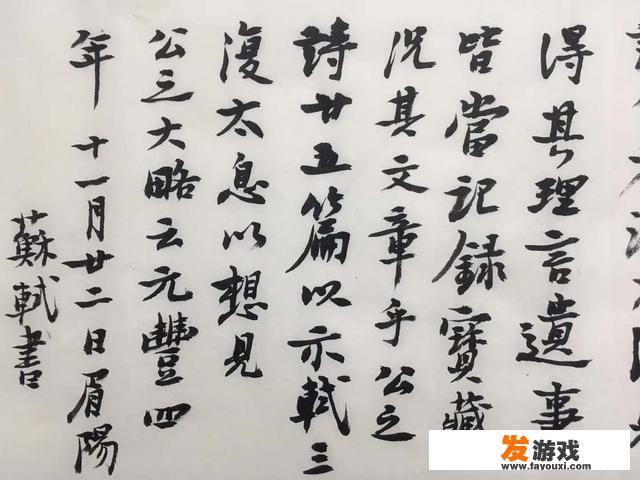 得其理言遺事
皆當記録寶藏
況其文章乎公之
詩廿五篇以示軾三
復太息以想見
公之大略云元豐四
年十一月廿二日眉陽
蘇軾書
发游戏
www.fayouxi.com